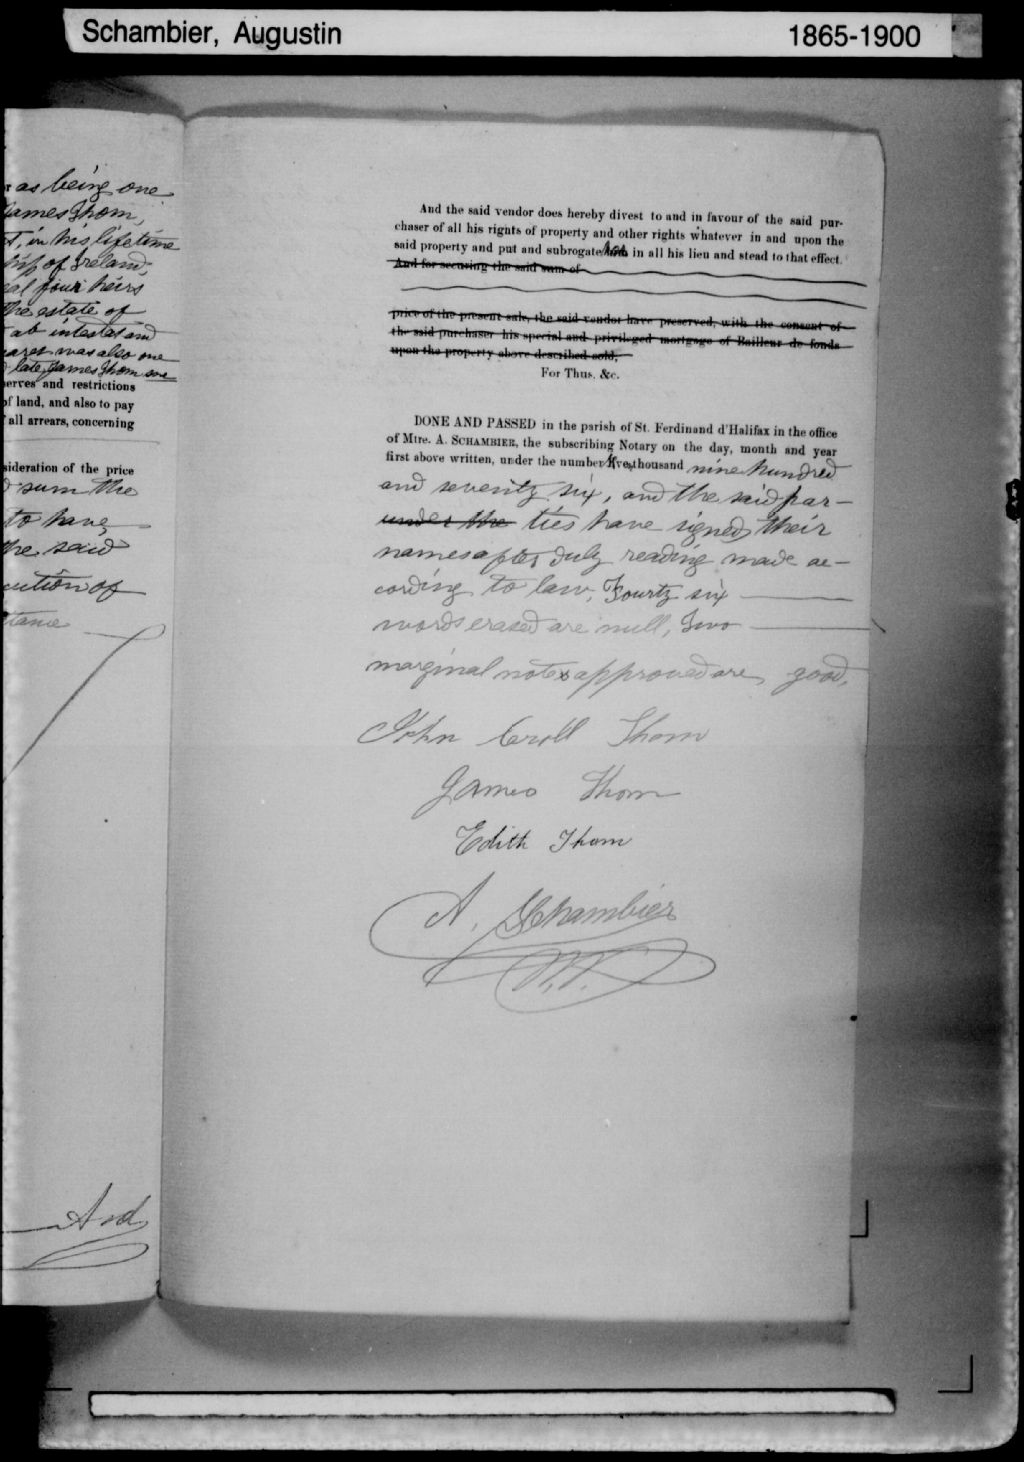 Schambier, Augustin 1865-1900
as being one
James Thom,
in his lifetime
of Ireland,
four heirs
the estate of
ab intestat and
was also one
late James Thom
serves and restrictions
of land, and also to pay
all arrears, concerning
sideration of the price
sum the
to have
the said
cution of
And
And the said vendor does hereby divest to and in favour of the said pur-
chaser of all his rights of property and other rights whatever in and upon the
said property and put and subrogate her in all his lieu and stead to that effect.
And for securing the said sum of
price of the present sale, the said vendor have preserved, with the consent of
the said purchaser his special and privileged mortgage of Bailleur de fonds
upon the property above described sold,
For Thus, &c.
DONE AND PASSED in the parish of St. Ferdinand d'Halifax in the office
of Mtre. A. SCHAMBIER, the subscribing Notary on the day, month and year
first above written, under the number five thousand nine hundred
and seventy six, and the said par-
under the ties have signed their
names after duly reading made ac-
cording to law, Fourty six
words erased are null, Two
marginal notes approved are good,
John Croll Thom
James Thom
Edith Thom
A. Schambier
N.P.